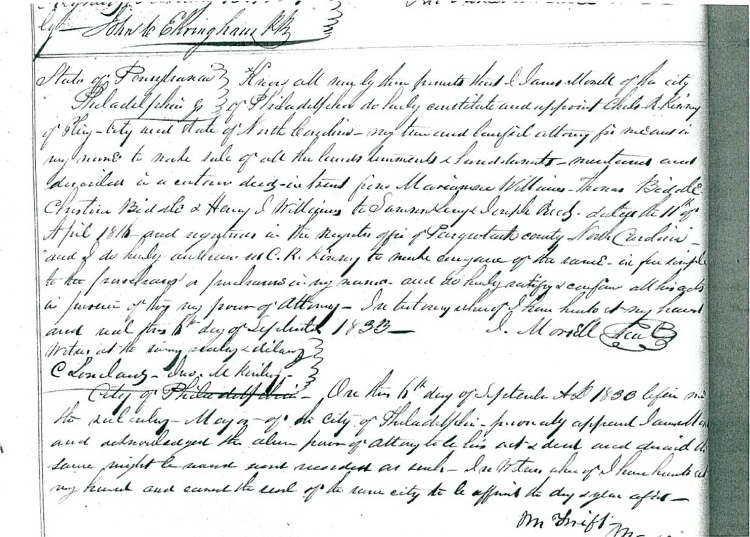 John C Ehringhaus P.R.
State of Pennsylvania } Know all men by these presents that I James Morell of the city
Philadelphia of Philadelphia do hereby constitute and appoint Chas R Kinny
of City and State of North Carolina my true and lawful attorny for me and in
my name to make sale of all the lands tenements & hereditaments mentioned and
described in a certain deed in trust from Marianne Williams Thomas Biddle
Christine Biddle & Henry J Williams to Joseph dated the 11th of
April 1816 and registered in the registers office of Pasquotank county North Carolina
and I do hereby authorise sd C. R. Kinny to make conveyance of the same in fee simple
to the purchaser or purchasers in my name and do hereby ratify & confirm all his acts
in pursuance of this my power of Attorny In testimony whereof I have hereto set my hand
and seal this 6th day of September 1833 J. Morell Seal
Witness at the signing sealing & delivery
C Loveland Jno. McKinley
City of Philadelphia On this 6th day of September AD 1833 before me
the subscriber Mayor of the city of Philadelphia personally appeared James
and acknowledged the above power of attorny to be his act & deed and desired the
same might be and recorded as such In Witness whereof I have hereto set
my hand and caused the seal of the same city to be affixed the day & year afsd
Jn Swift